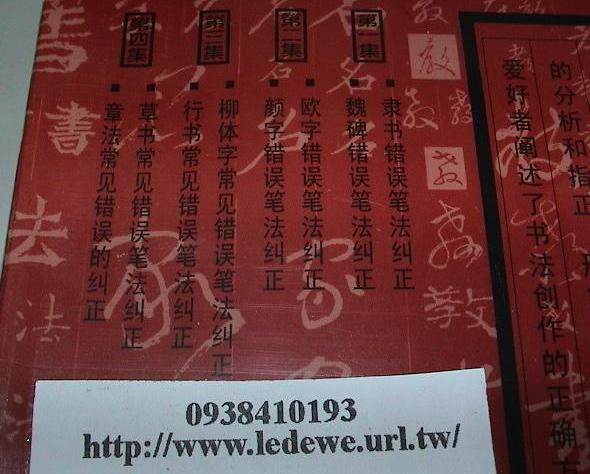 的分析和指正
爱好者阐述了书法创作的正确
第一集
隶书错误笔法纠正
魏碑错误笔法纠正
第二集
欧字错误笔法纠正
颜字错误笔法纠正
第三集
柳体字常见错误笔法纠正
行书常见错误笔法纠正
第四集
草书常见错误笔法纠正
章法常见错误的纠正
0938410193
http://www.ledewe.url.tw/